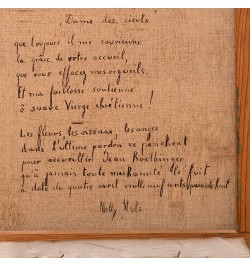 Dame des cieulx
que toujours il me souvienne
la grâce de votre accueil,
que vous effacez mes orgueils.
Et ma faiblesse soutienne
ô suave Vierge chrétienne !
Les fleurs, les oiseaux, les anges
dans l'ultime pardon se penchent
pour accueillir Jean
qu'à jamais toute méchanceté
à date du quatre avril mille neuf cents